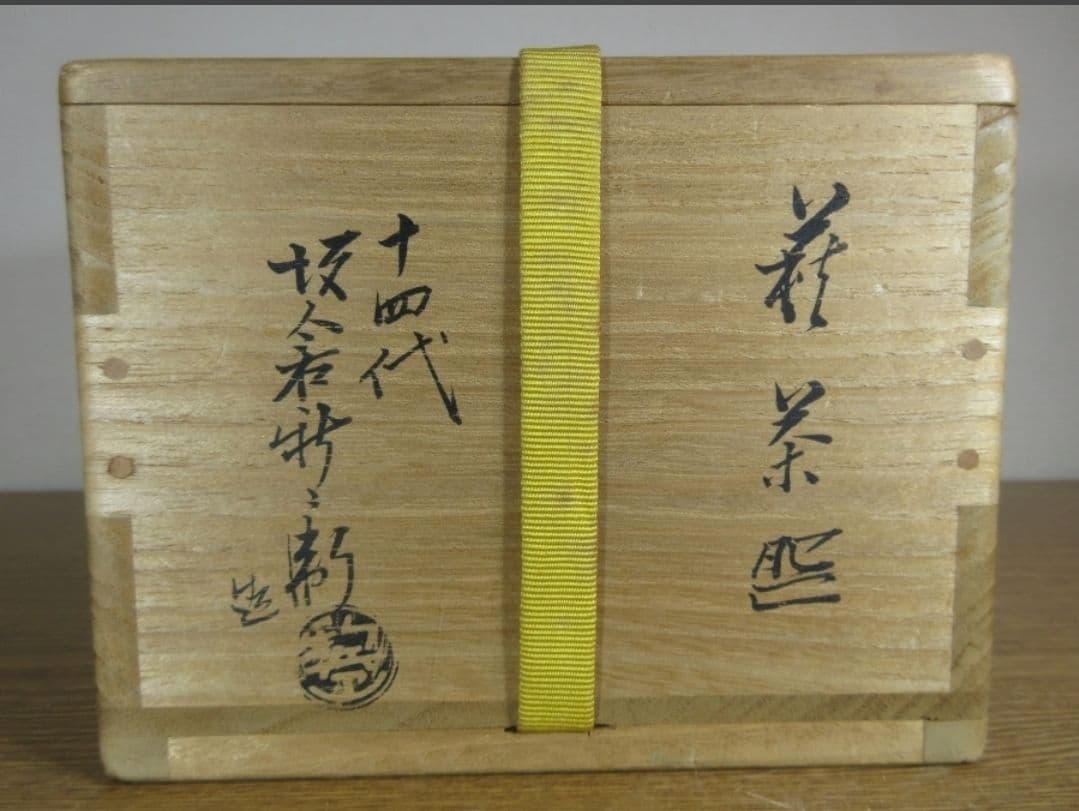 萩茶碗
十四代
坂倉新兵衛
造